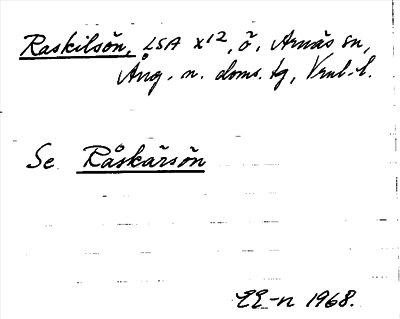 Raskilsön, LSA x12, ö, Arnäs sn,
Ång. n. doms. tg, Vrnl. l.
Se Råskärsön
EE-n 1968.